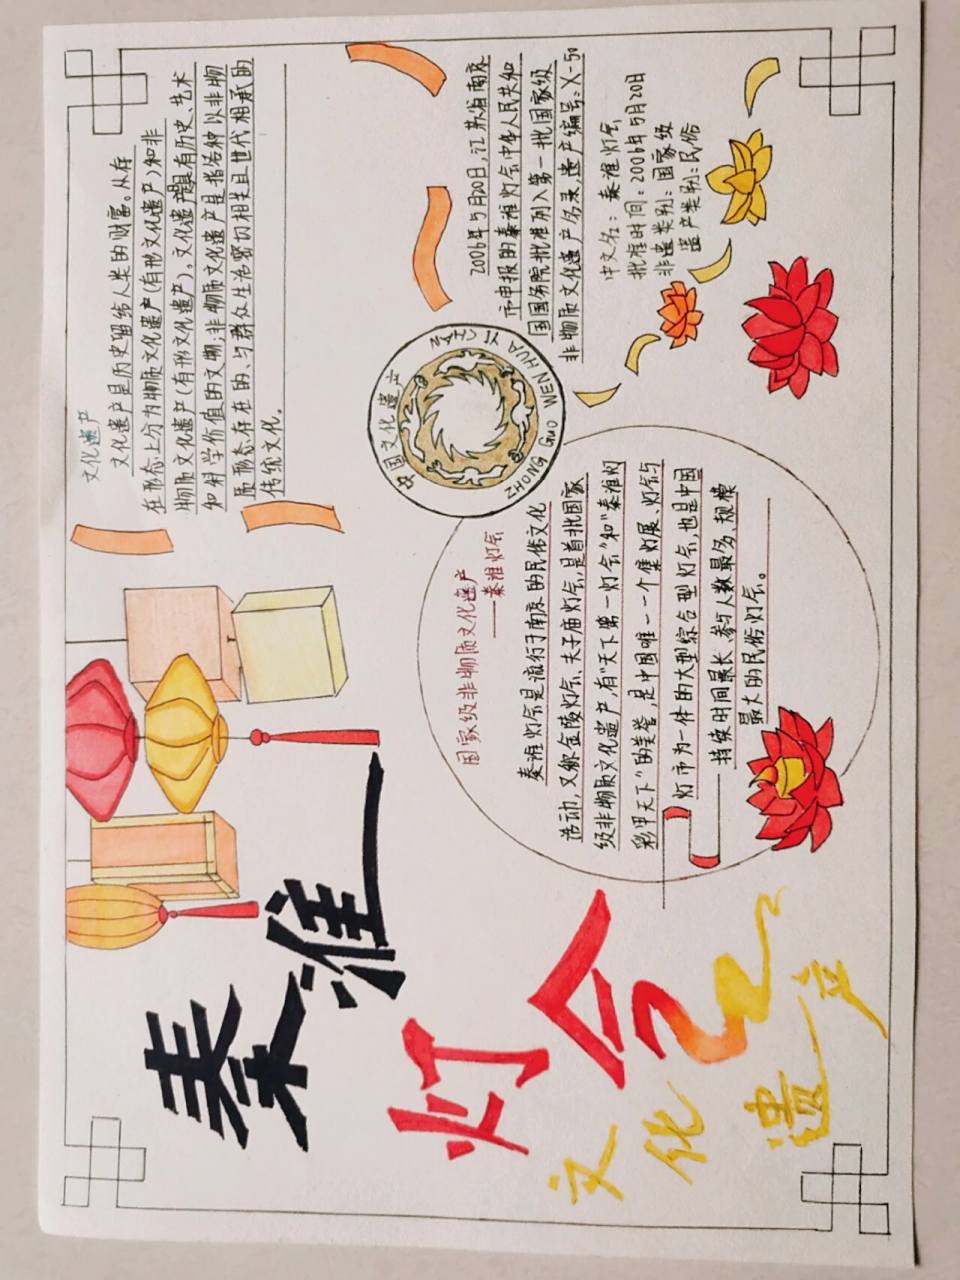 秦淮
灯会
文化遗产
文化遗产
文化遗产是历史留给人类的财富。从存
在形态上分为物质文化遗产(有形文化遗产)和非
物质文化遗产(有形文化遗产)。文化遗产是具有历史、艺术
和科学价值的文物;非物质文化遗产是指各种以非物
质形态存在的、与群众生活密切相关且世代相承的
传统文化。
中国文化遗产
ZHONG GUO WEN HUA YI CHAN
2006年5月20日,江苏省南京
市申报的秦淮灯会中华人民共和
国国务院批准列入第一批国家级
非物质文化遗产名录,遗产编号:X-50
中文名:秦淮灯会
批准时间:2006年5月20日
非遗类别:国家级
遗产类别:民俗
国家级非物质文化遗产
——秦淮灯会
秦淮灯会是流行于南京的民俗文化
活动,又称金陵灯会、夫子庙灯会,是首批国家
级非物质文化遗产,有“天下第一灯会”和“秦淮灯
彩甲天下”的美誉,是中国唯一一个集灯展、灯会与
灯市为一体的大型综合型灯会,也是中国
持续时间最长、参与人数最多、规模
最大的民俗灯会。